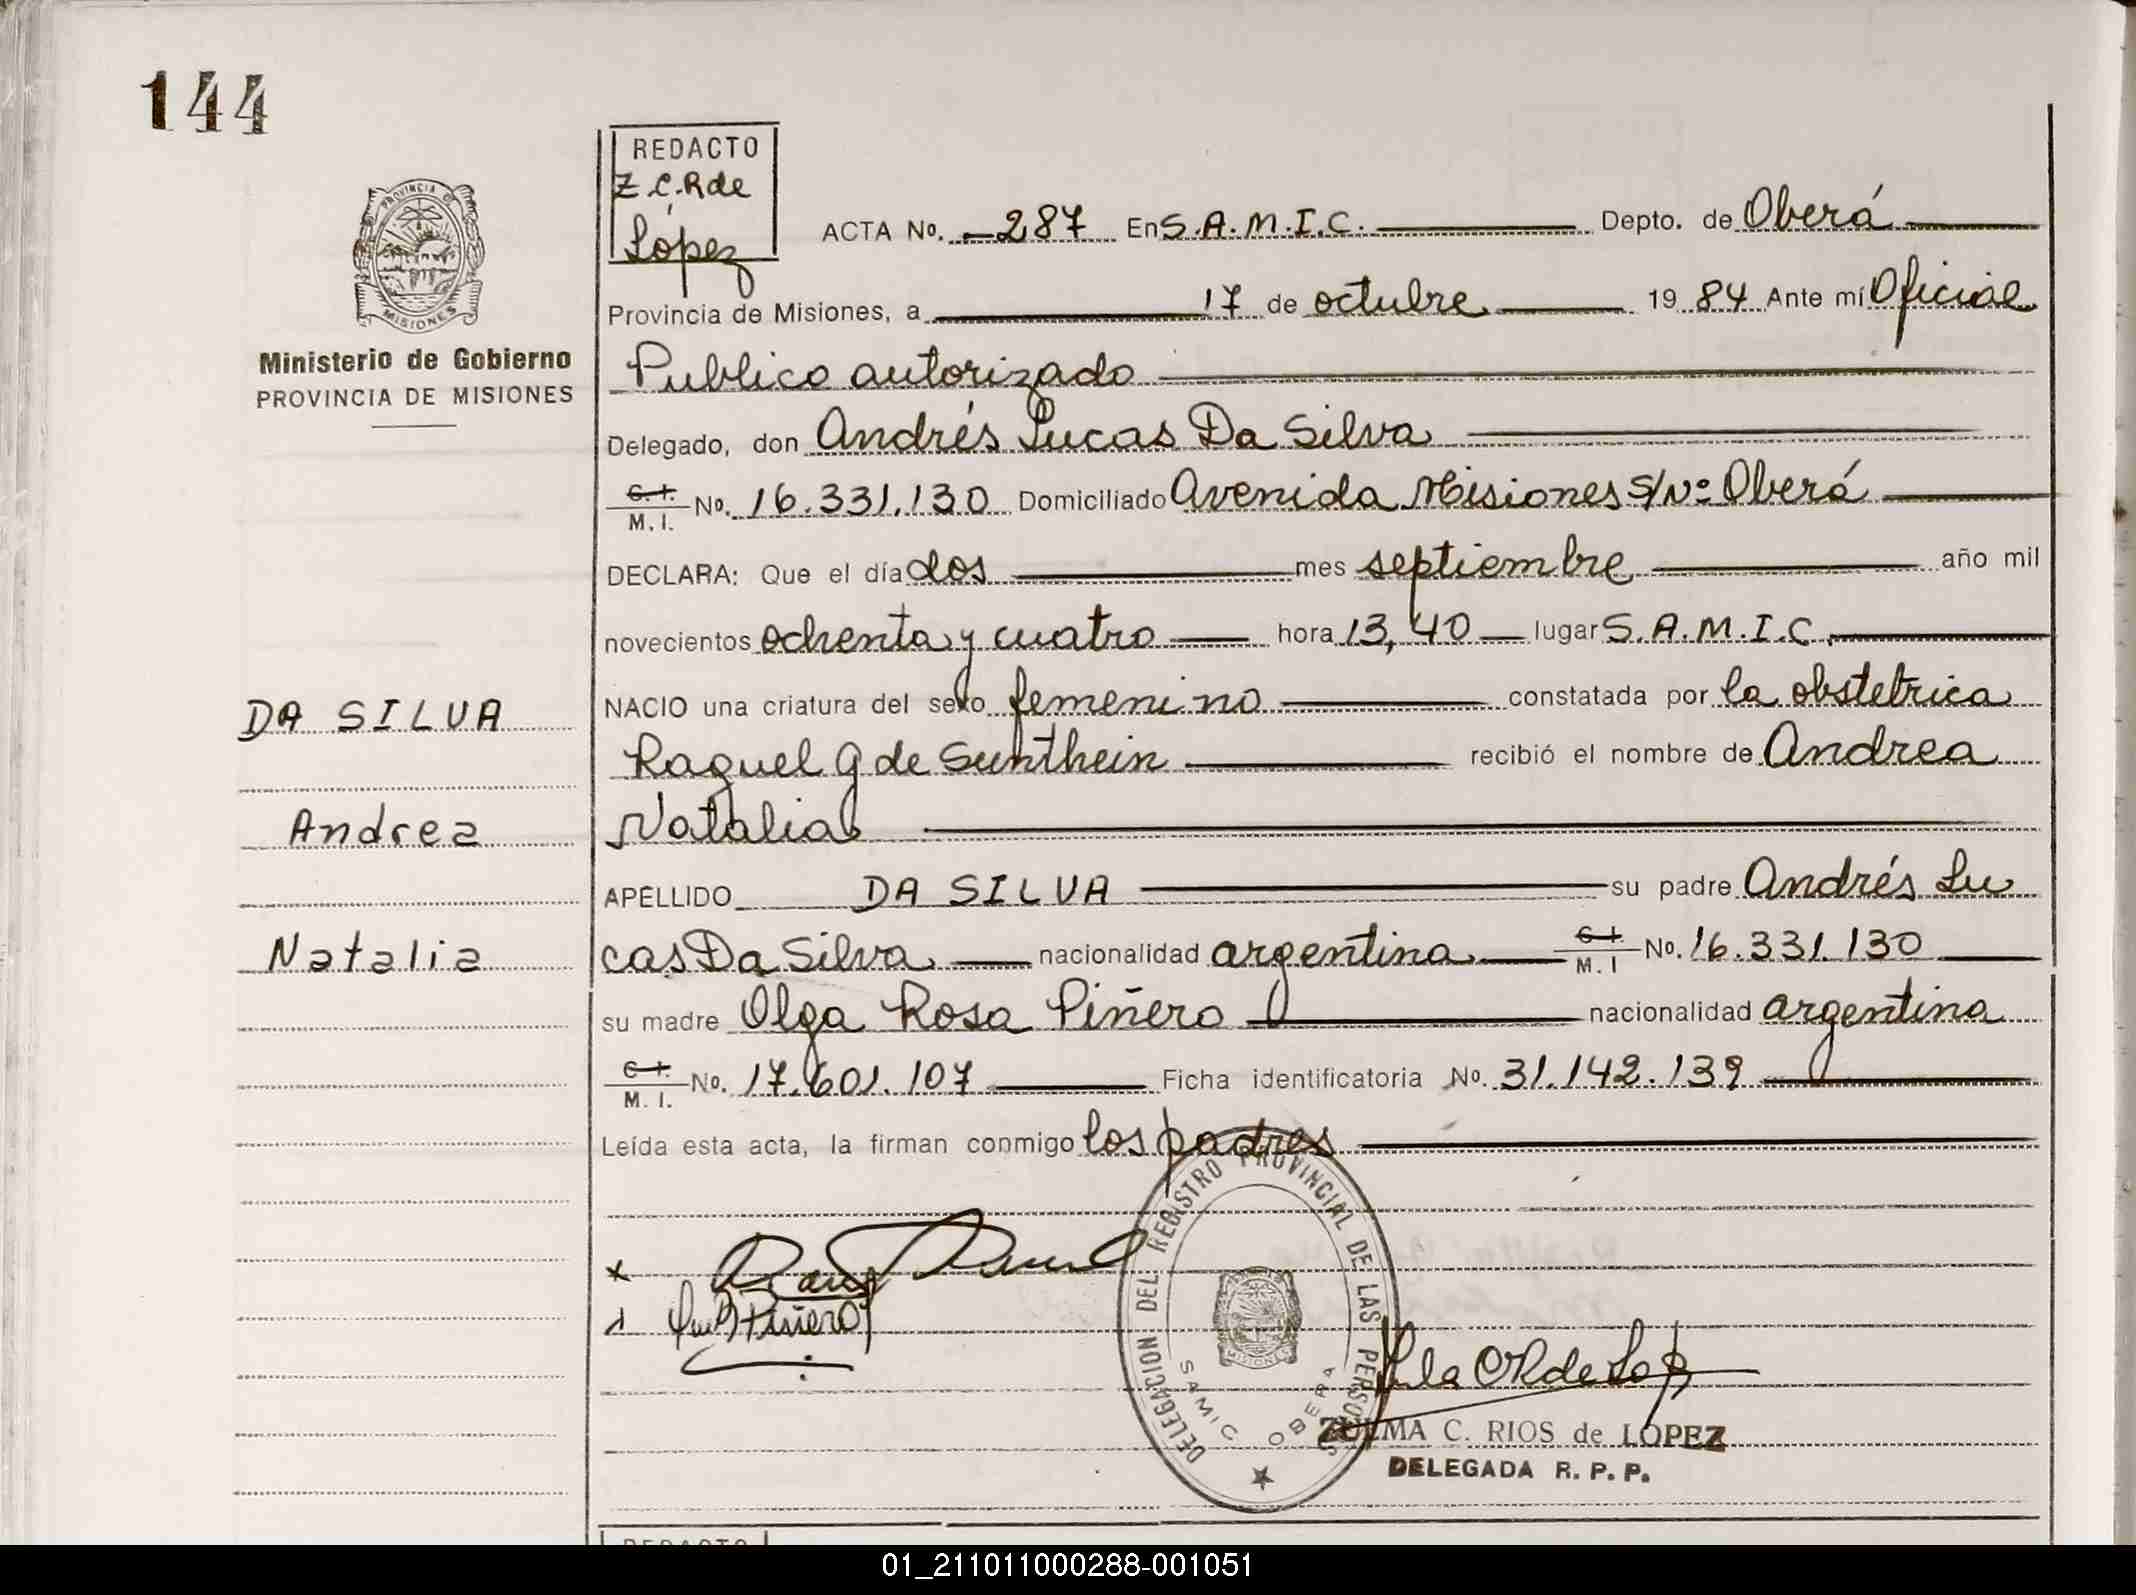 144
PROVINCIA DE
MISIONES
Ministerio de Gobierno
PROVINCIA DE MISIONES
DA SILVA
Andrea
Natalia
REDACTO
Z.C.R de
López
ACTA No. 287 En S.A.M.I.C. Depto. de Oberá
Provincia de Misiones, a 17 de octubre 1984 Ante mí Oficial
Publico autorizado
Delegado, don Andrés Lucas Da Silva
C.I.
M.I. No. 16.331.130 Domiciliado Avenida Misiones S/Nº Oberá
DECLARA: Que el día dos mes septiembre año mil
novecientos ochenta y cuatro hora 13,40 lugar S.A.M.I.C.
NACIO una criatura del sexo femenino constatada por la obstetrica
Raquel G de Sunthein recibió el nombre de Andrea
Natalia
APELLIDO DA SILVA su padre Andrés Lu
cas Da Silva nacionalidad argentina C.I.
M.I No. 16.331.130
su madre Olga Rosa Piñero nacionalidad argentina
C.I.
M.I. No. 17.601.107 Ficha identificatoria No. 31.142.139
Leída esta acta, la firman conmigo los padres
Piñero
DELEGACION DEL REGISTRO PROVINCIAL DE LAS PERSONAS
MISIONES
SAMIC OBERA
ZULMA C. RIOS de LOPEZ
DELEGADA R. P. P.
REDACTO
01_211011000288-001051